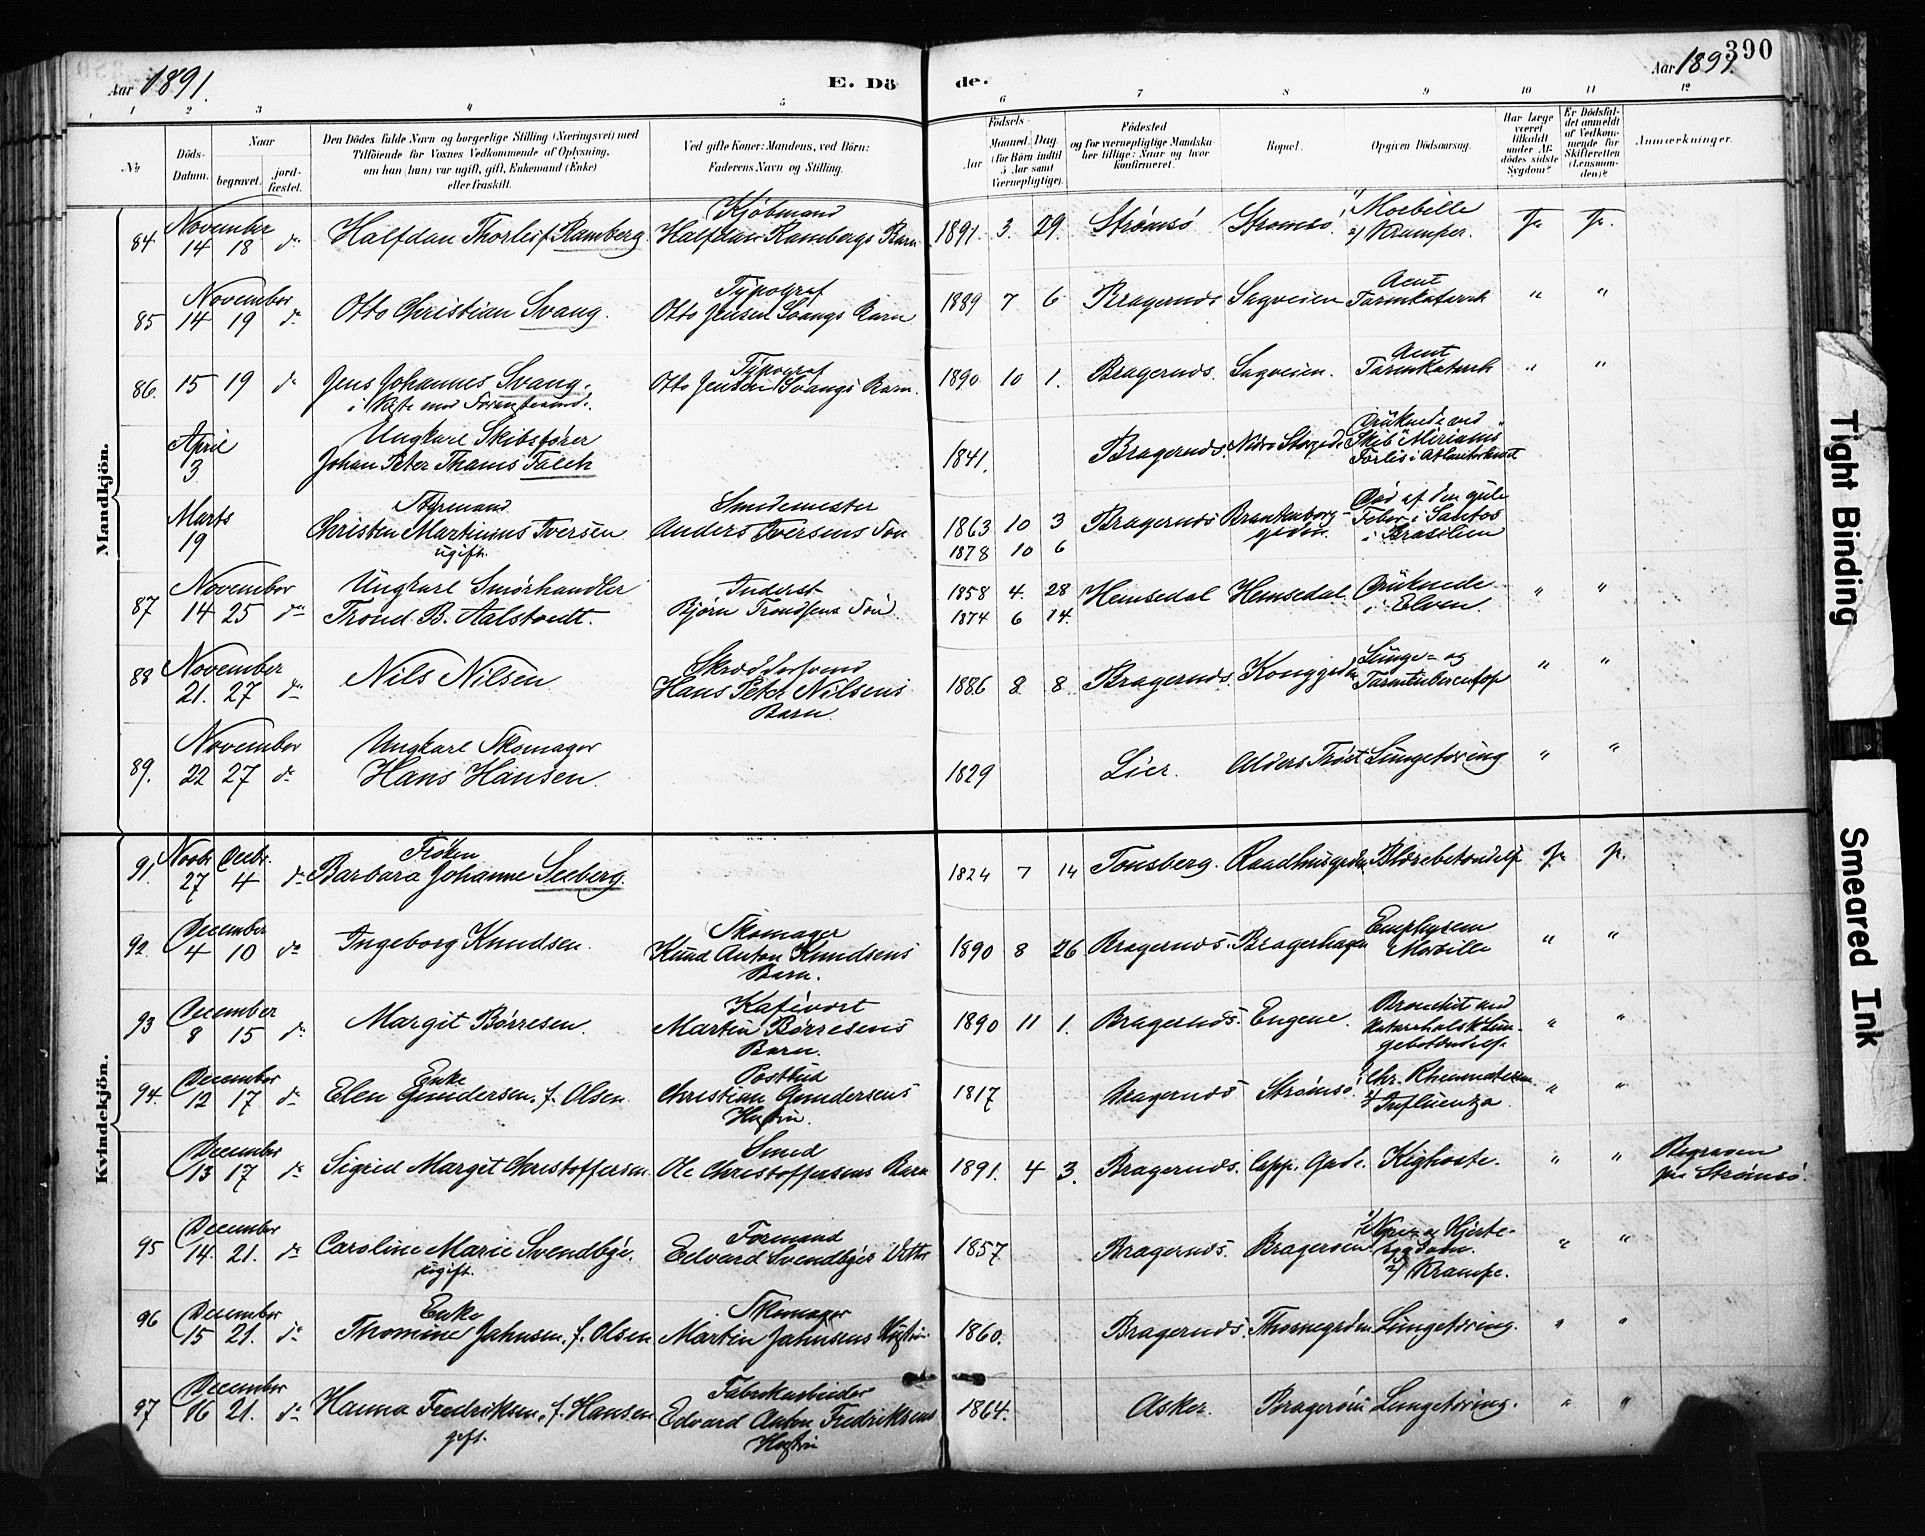 390
Aar 1891. E. Dö de. Aar 1891.
1 2 3 4 5 6 7 8 9 10 11 12
No
Döds-Datum.
Naar
begravet.
jord-fæstet.
Den Dödes fulde Navn og borgerlige Stilling (Næringsvei) med
Tilföiende for Voxnes Vedkommende af Oplysning,
om han (hun) var ugift, gift, Enkemand (Enke)
eller fraskilt.
Ved gifte Koner: Mandens, ved Börn:
Faderens Navn og Stilling.
Födsels-
Aar
Maaned
Dag
(for Börn indtil
5 Aar samt
Værnepligtige).
Födested
og for værnepligtige Mandsku-
ber tillige: Naar og hvor
konfirmeret.
Bopæl.
Opgiven Dödsaarsag.
Har Læge
været
tilkaldt
under Af-
dödes sidste
Sygdom?
Er Dödsfal-
det anmeldt
af Vedkom-
mende for
Skifteretten
(Lensman-
den)?
Anmærkninger.
Mandkjön.
84 November 14 18 do Halfdan Thorleif Ramberg. Kjøbmand Halfdan Rambergs Barn 1891. 3. 29. Strømsø Strømsø. 1) Morbille 2) Kramper. Ja Ja.
85 November 14 19 do Otto Christian Svang. Typograf Otto Jensen Svangs Barn 1889 7 6 Bragernæs Sagveien Acut Tarmkatarrh " "
86. 15 19 do Jens Johannes Svang. i Kiste med Foranstaaende. Typograf Otto Jensen Svangs Barn. 1890 10 1. Bragernæs. Sagveien. Acut Tarmkatarrh " "
April 3 Ungkarl Skibsfører Johan Peter Thams Falch 1841. Bragernæs. Nedre Storgade Druknede ved Skib "Miriams" Forlis i Atlanterhavet
Marts 19 Styrmand Christen Martinius Iversen ugift. Smedemester Anders Iversens Søn 1863 10 3 1878 10 6 Bragernæs Brantenborg-gaden. Død af den gule Feber i Santos i Brasilien
87 November 14 25 do Ungkarl Smørhandler Trond B. Aalstvedt. Inderst Bjørn Trondsens Søn. 1858 4. 28 1874 6 14. Hemsedal Hemsedal Druknede i Elven. " "
88 November 21. 27 do Nils Nilsen Skræddersvend Hans Peter Nilsens Barn. 1886 8 8. Bragernæs. Konggaden Lunge- og " "
89. November 22 27 do Ungkarl Skomager Hans Hansen. 1829 Lier. Alders Trøst Lungetæring " "
Kvindekjön.
91. Novbr 27 Decbr. 4 do Frøken Barbara Johanne Seeberg. 1824 7 14 Tønsberg. Raadhusgaden Blærebetændelse Ja Ja.
92. December 4 10 do Ingeborg Knudsen. Skomager Knud Anton Knudsens Barn. 1890 8 26 Bragernæs. Bragerhagen Emphysem Morbille " "
93 December 8 15 do Margit Børresen. Kafévert Martin Børresens Barn. 1890 11 1. Bragernæs. Engene. Bronchit med katarrhalsk Lun-gebetændelse " "
94. December 12 17 do Enke Elen Gundersen, f. Olsen. Postbud Christian Gundersens Hustru. 1817 Bragernæs Strømsø. 1) Chr. Rheumatisme 2) Influenza. " "
December 13 17 do Sigrid Margit Christoffersen. Smed Ole Christoffersens Barn 1891. 4 3. Bragernæs. Capp. Gade. Kighoste. " " Begraven paa Strømsø.
95 December 14. 21. do Caroline Marie Svendbye. ugift. Formand Edvard Svendbyes Datter 1857 Bragernæs. Bragerøen 1) Nyre- og Hjerte-sygdom. 2) Krampe. " "
96 December 15 21. do Enke Thomine Jahnsen, f. Olsen Skomager Martin Jahnsens Hustru 1860. Bragernæs. Thornegaden Lungetæring. " "
97 December 16 21. do Hanna Fredriksen, f. Hansen gift. Fabrikarbeider Edvard Anton Fredriksens Hustru 1864. Asker. Bragerøen Lungetæring. " "
Tight Binding
Smeared Ink